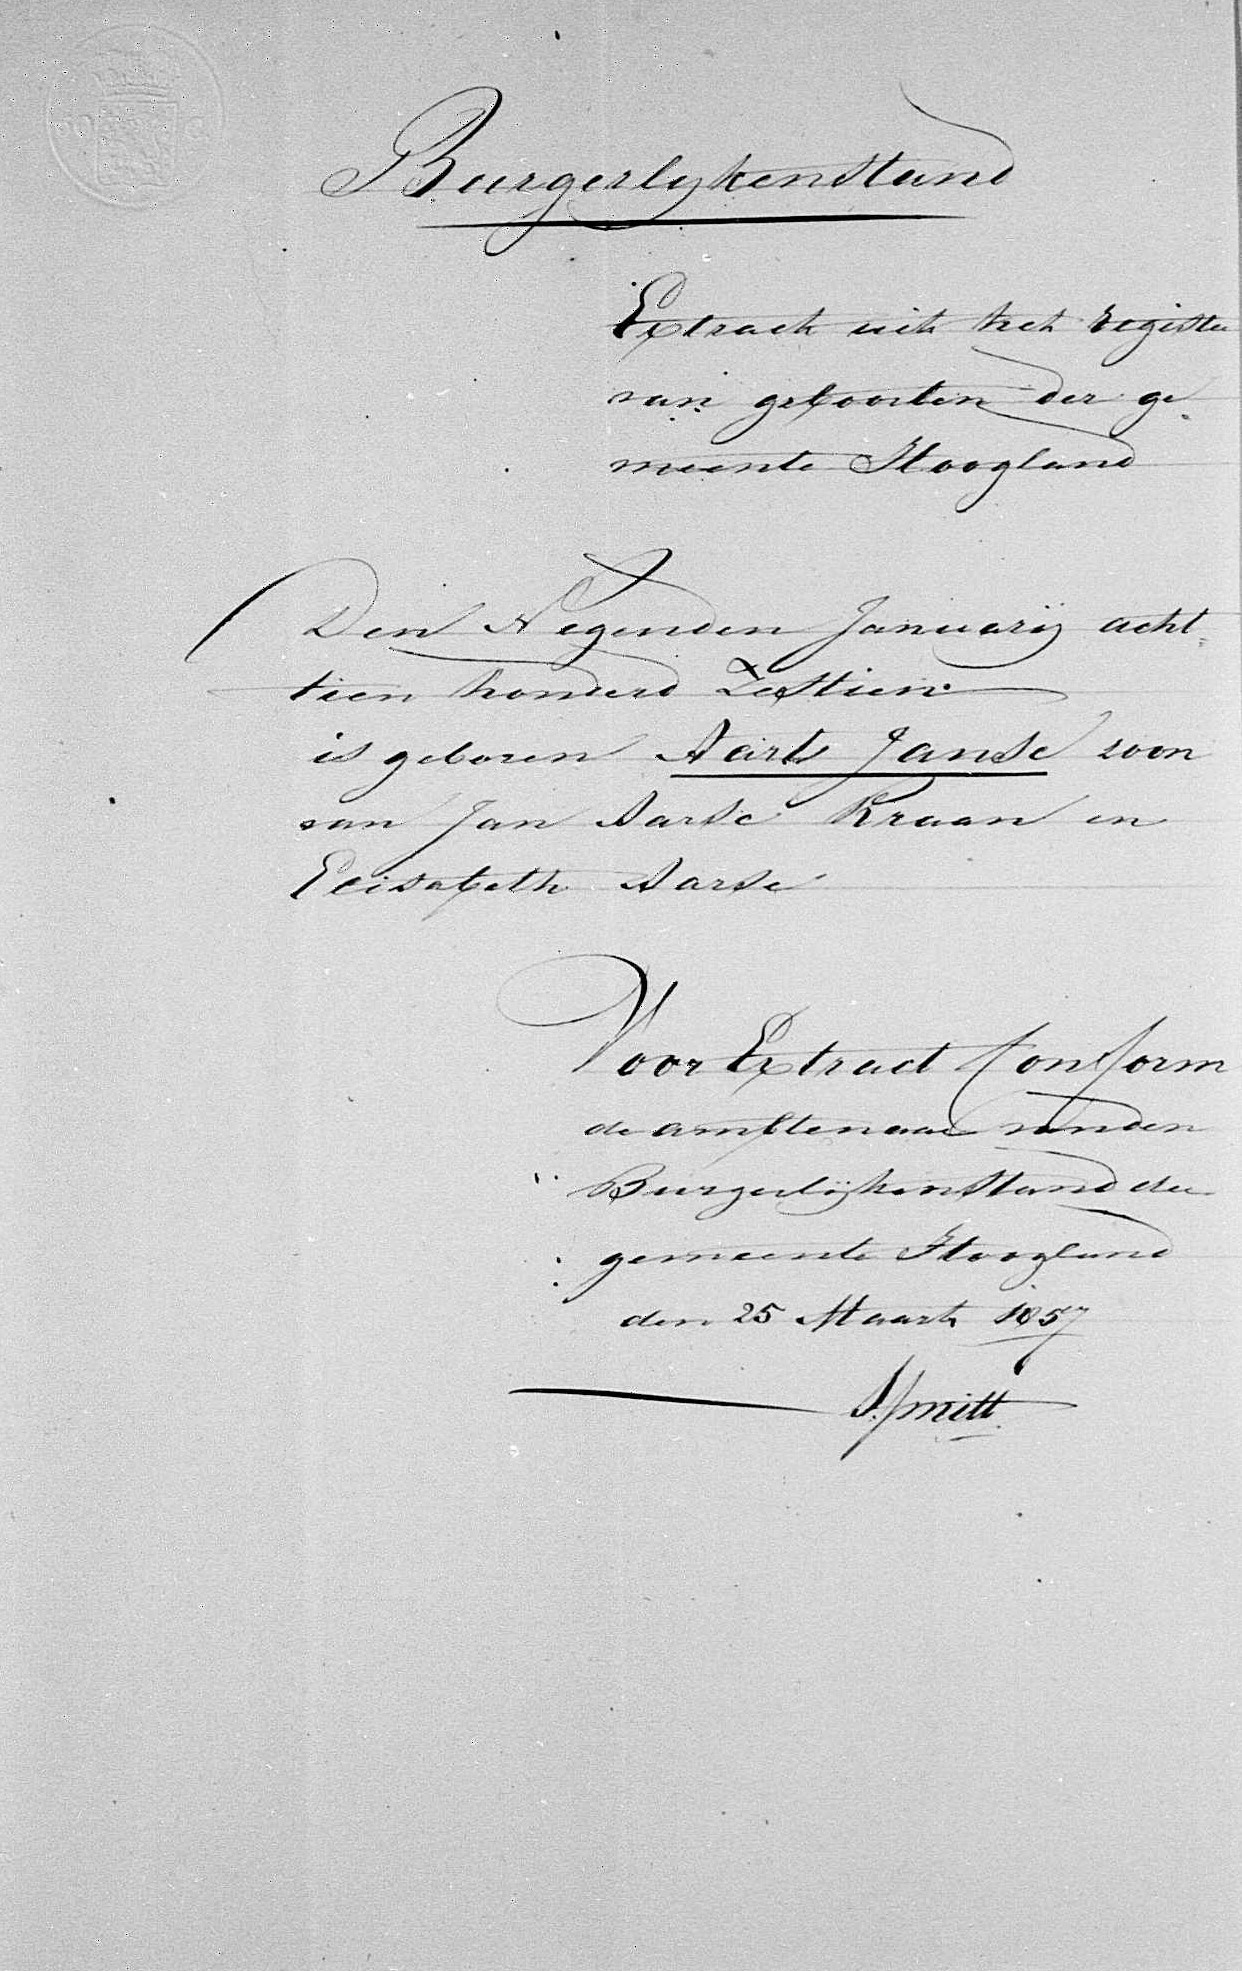 Burgerlykenstand
Extract uit het register
van geboorten der ge-
meente Hoogland
Den Negenden Januarij acht-
tien honderd Zestien
is geboren Aart Janse zoon
van Jan Aarse Kraan en
Elisabeth Aarse
Voor Extract Conform
de ambtenaar van den
Burgerlijkenstand der
gemeente Hoogland
den 25 Maart 1857
S. Smitt